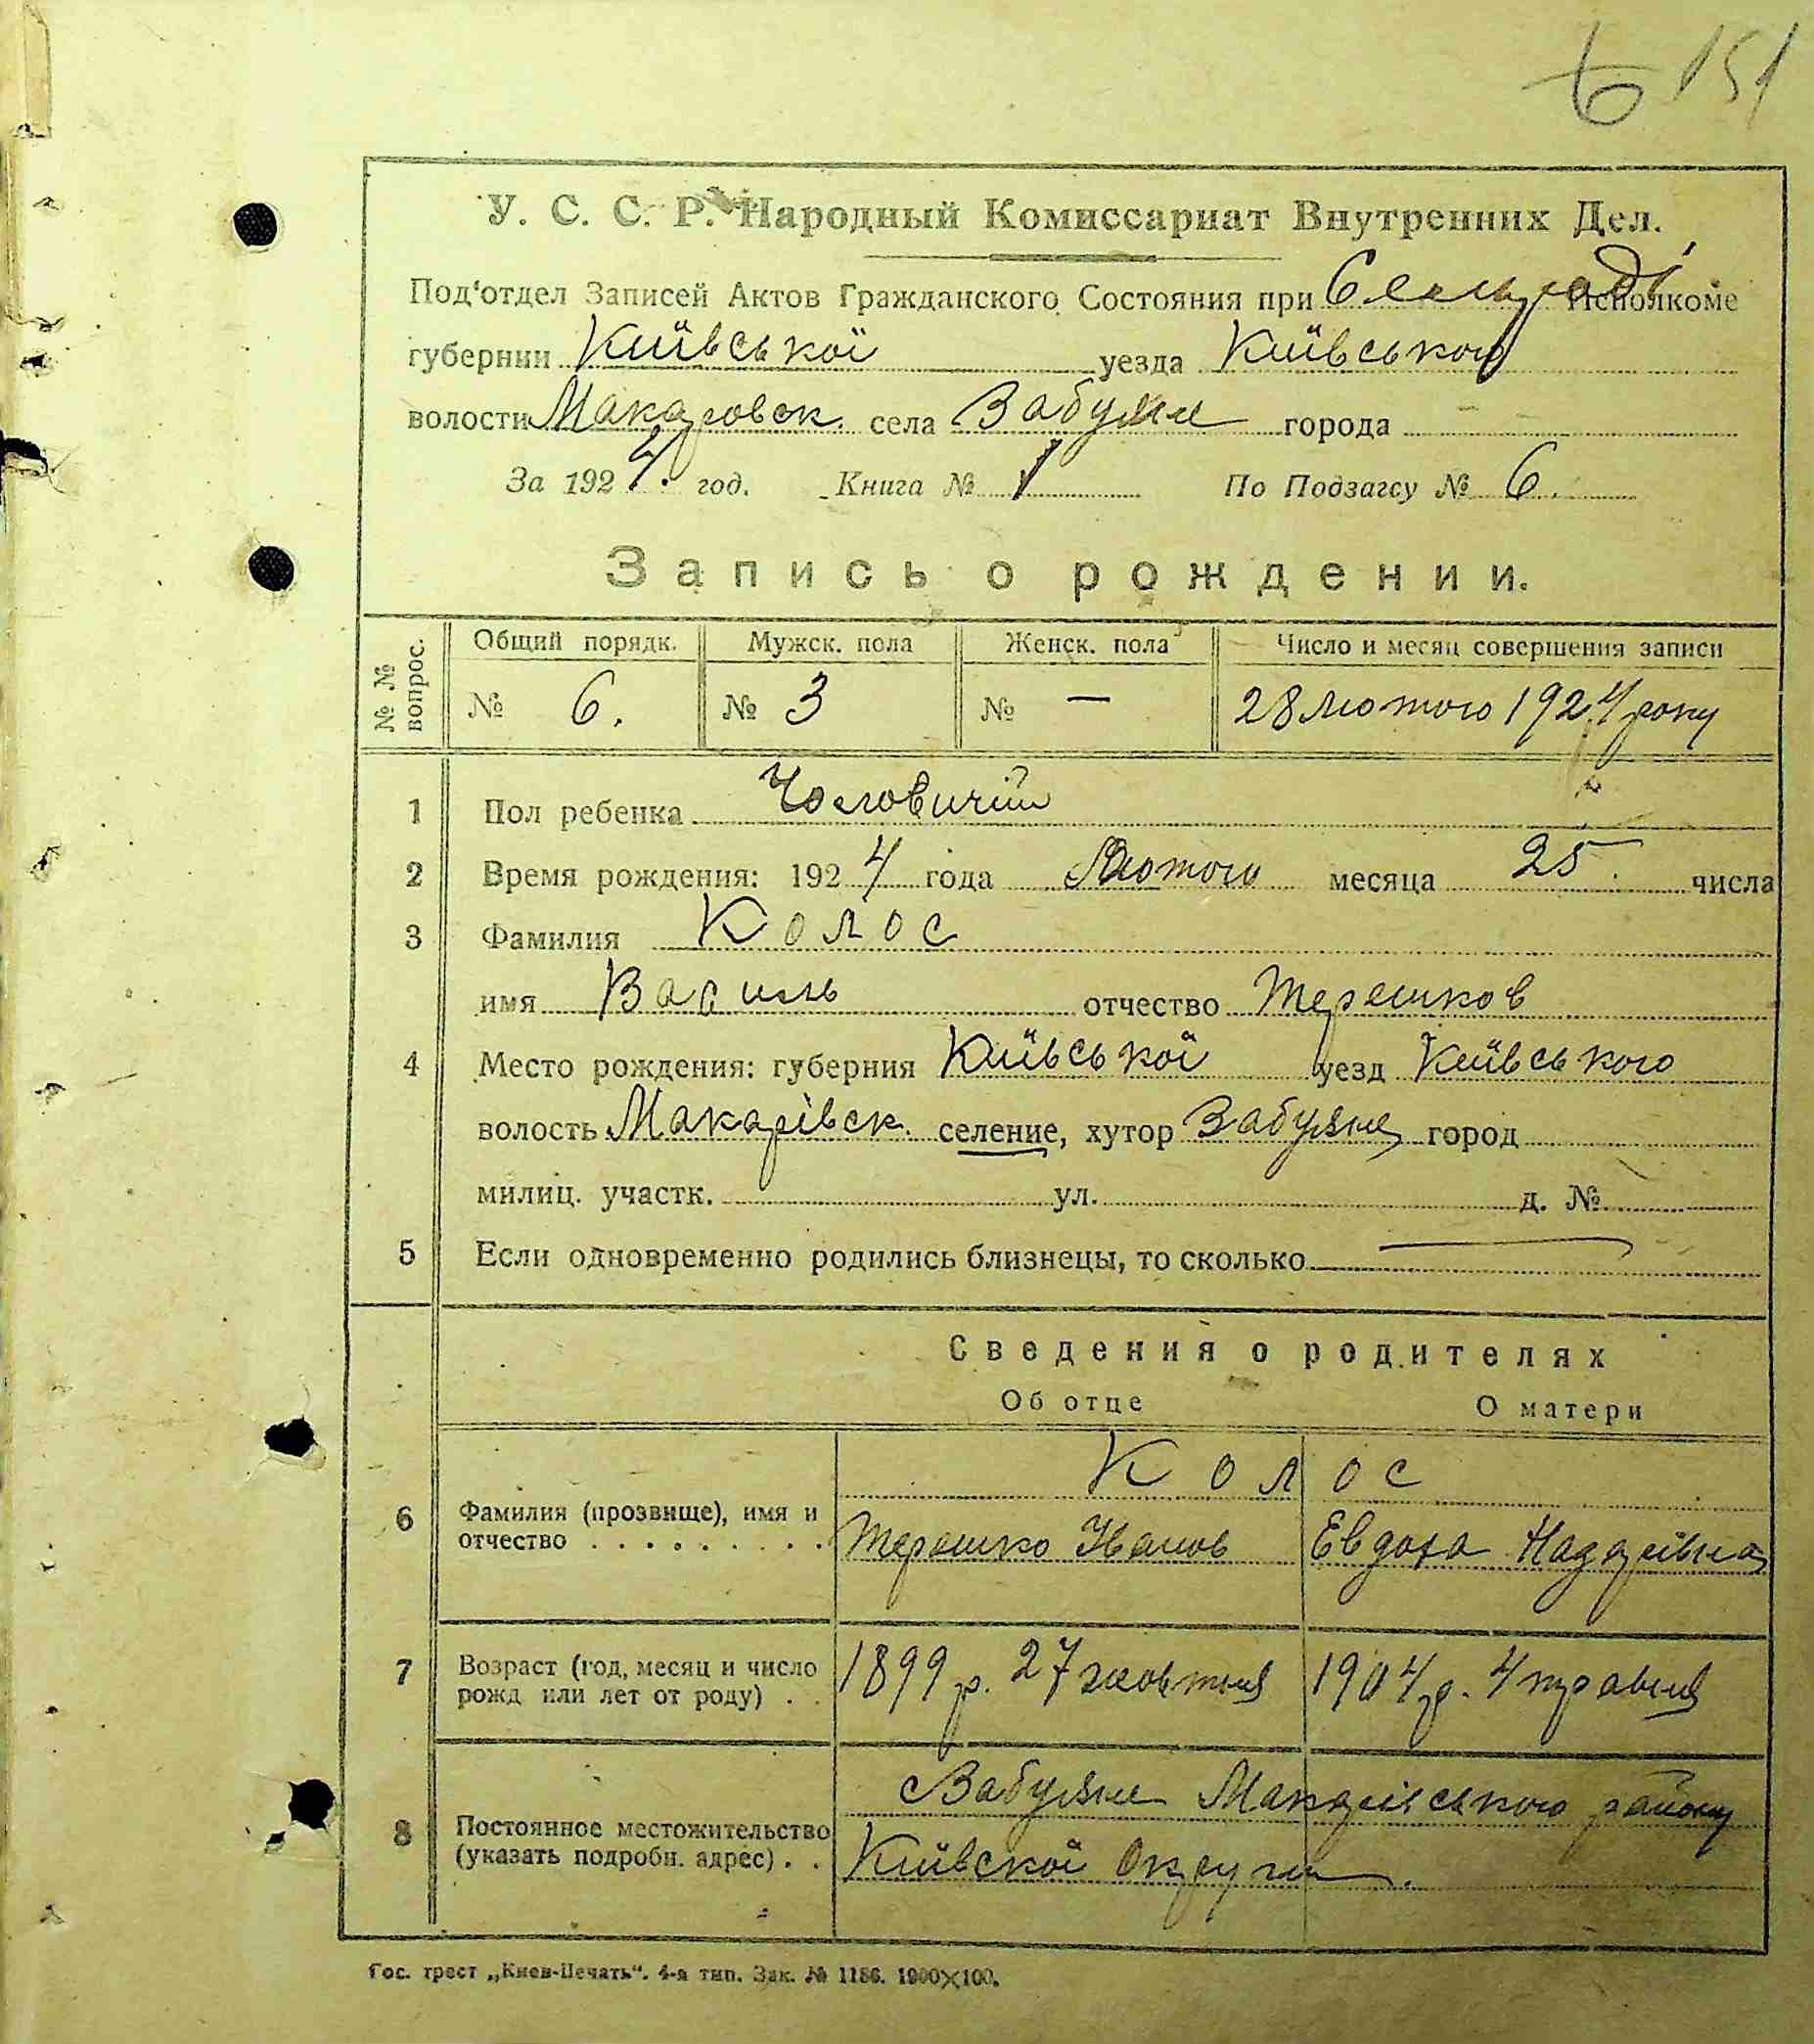 151
У. С. С. Р. Народный Комиссариат Внутренних Дел.
Под'отдел Записей Актов Гражданского Состояния при Сельраді Исполкоме
губернии Київської уезда Київського
волости Макаровск. села Забуяня города
За 1924. год. Книга № 1 По Подзагсу № 6.
Запись о рождении.
№ № вопрос. Общий порядк. Мужск. пола Женск. пола Число и месяц совершения записи
№ 6. № 3 № — 28 лютого 1924 року
1 Пол ребенка Чоловичій
2 Время рождения: 1924 года Лютого месяца 25. числа
3 Фамилия Колос
имя Василь отчество Терешков
4 Место рождения: губерния Київської уезд Київського
волость Макарівск. селение, хутор Забуяня город
милиц. участк. ул. д. №
5 Если одновременно родились близнецы, то сколько —
Сведения о родителях
Об отце О матери
Колос
6 Фамилия (прозвище), имя и
отчество . . . . . . . . . Терешко Іванов Евдоха
7 Возраст (год, месяц и число
рожд или лет от роду) . . 1899 р. 27 жовтня 1904 р. 4 травня
Забуяня Макарівського району
8 Постоянное местожительство
(указать подробн. адрес) . . Київской Округи.
Гос. трест „Киев-Печать“. 4-я тип. Зак. № 1156. 1000×100.